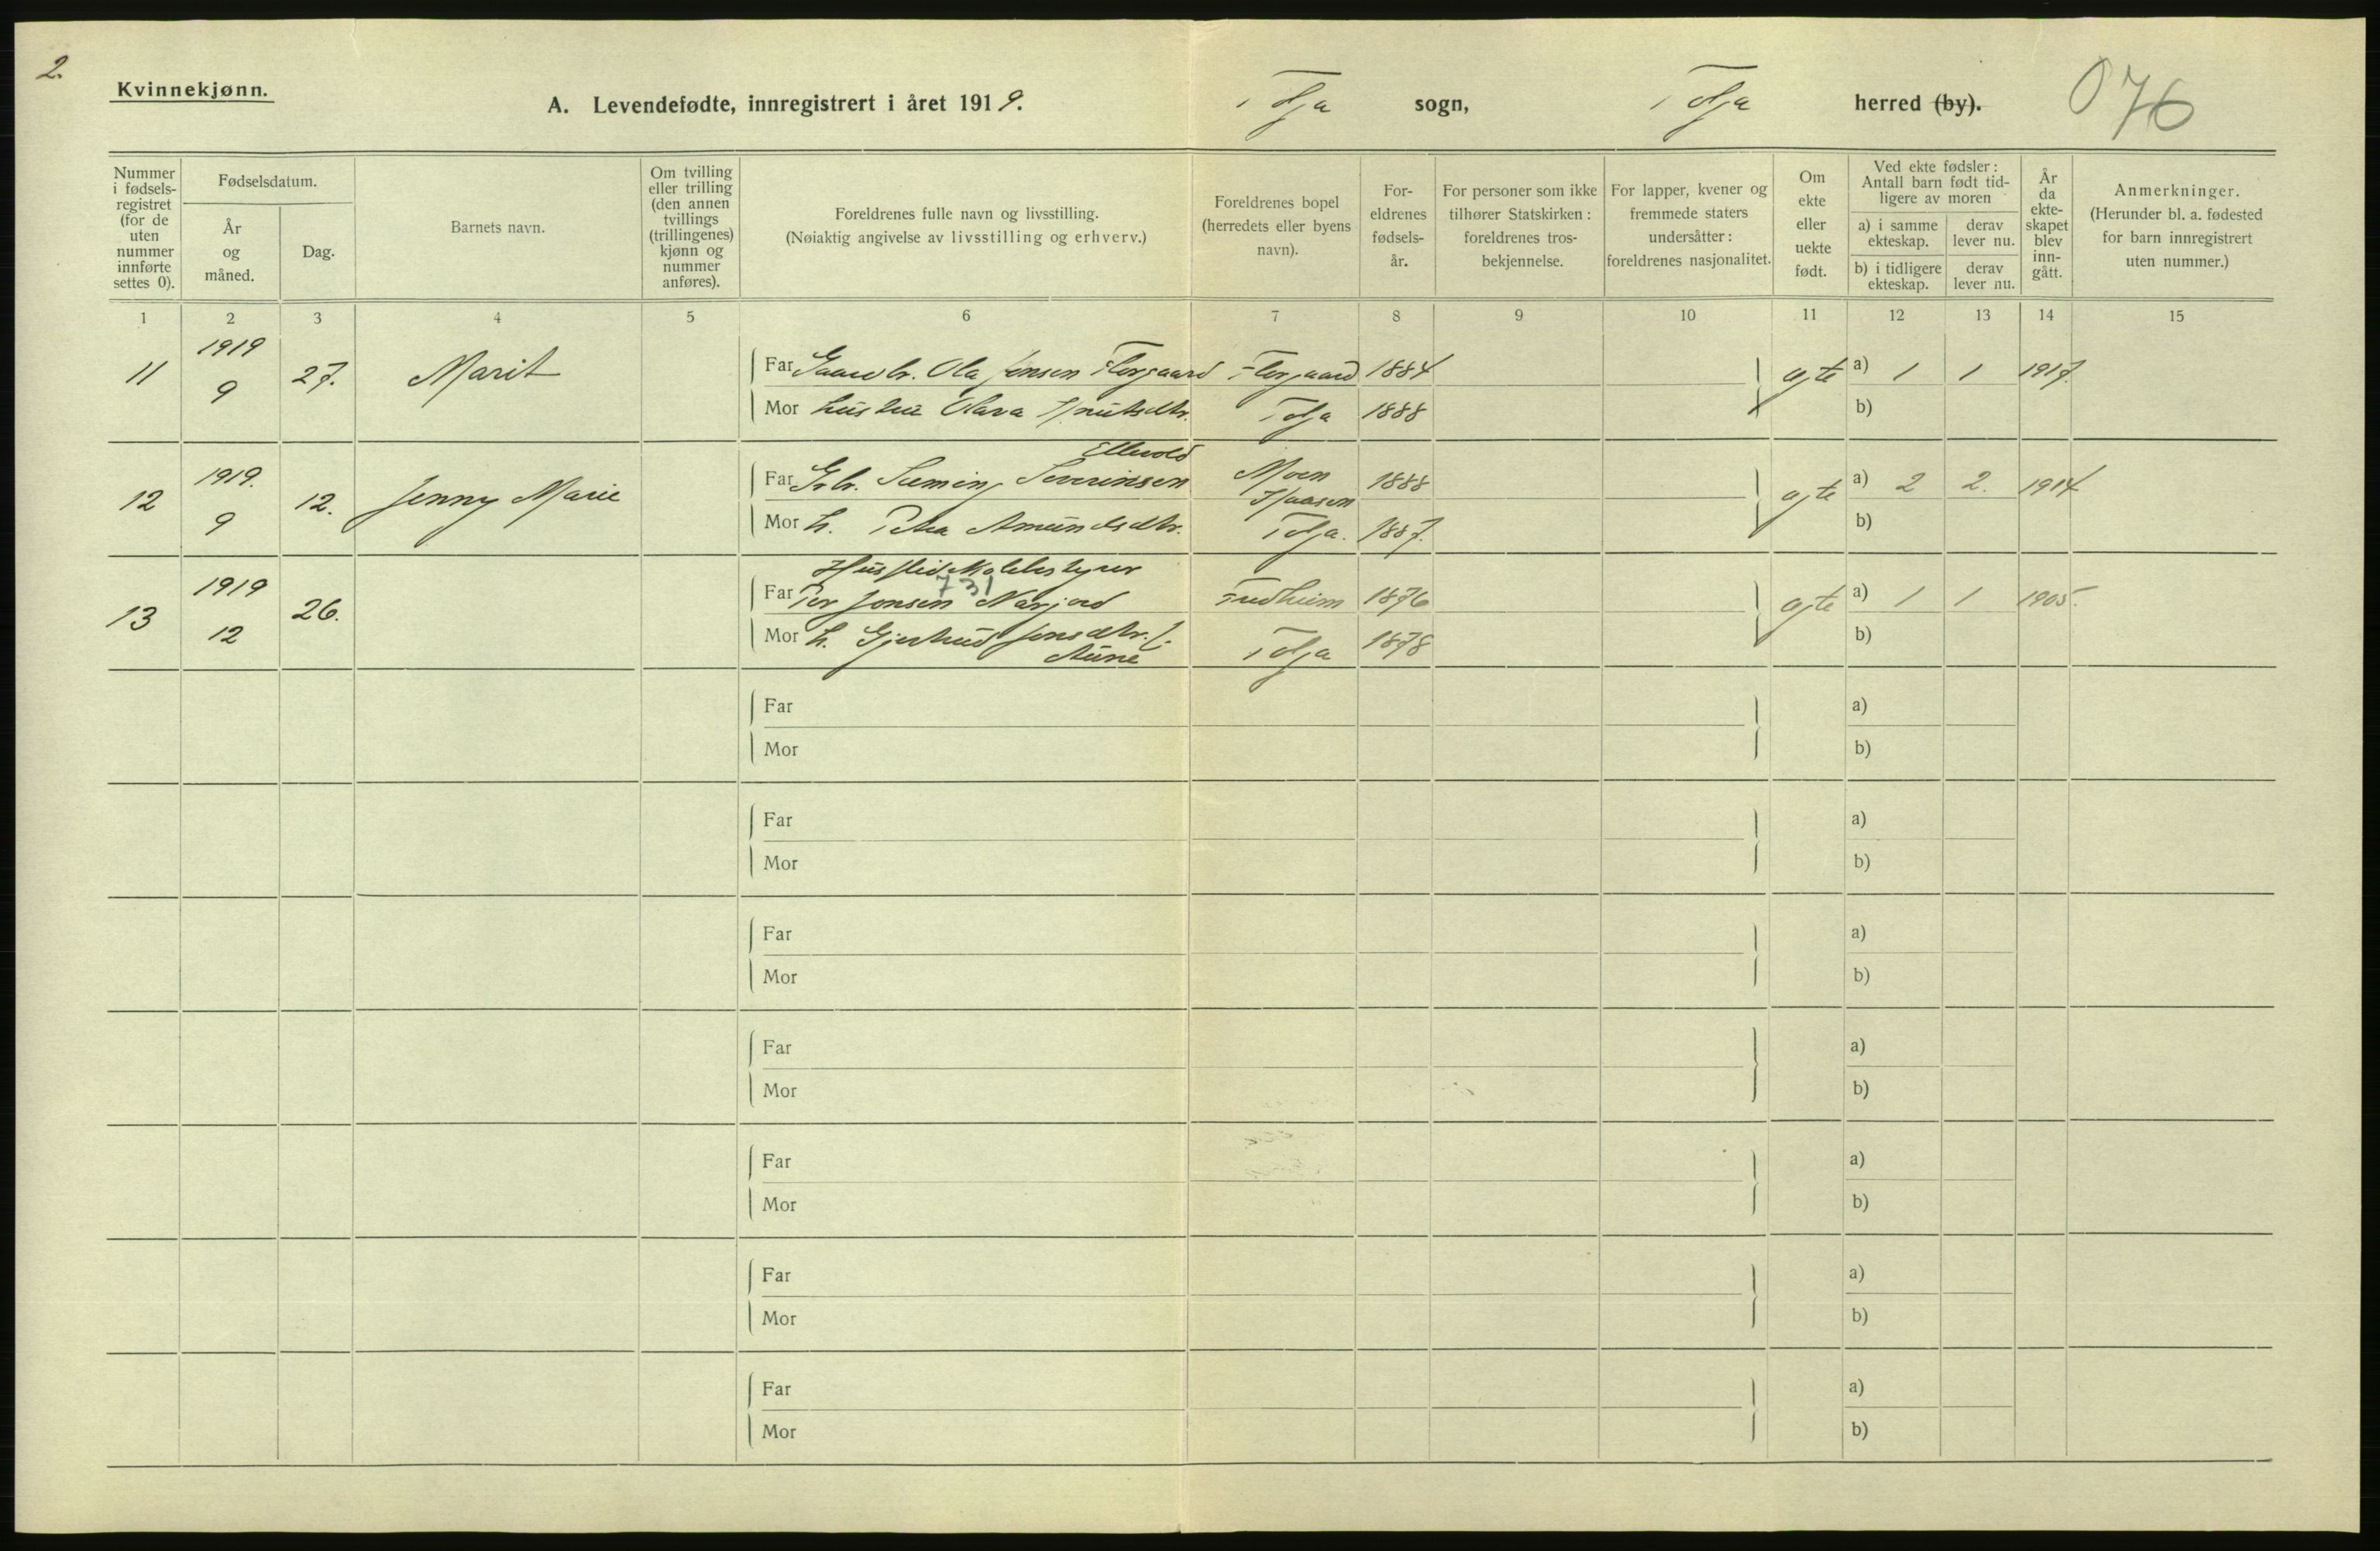 2.
Kvinnekjønn.
A. Levendefødte, innregistrert i året 1919.
Tolga sogn, Tolga herred (by).
076
Nummer i fødsels-registret (for de uten nummer innførte settes 0).
Fødselsdatum.
År og måned.
Dag.
Barnets navn.
Om tvilling eller trilling (den annen tvillings (trillingenes) kjønn og nummer anføres).
Foreldrenes fulle navn og livsstilling.
(Nøiaktig angivelse av livsstilling og erhverv.)
Foreldrenes bopel (herredets eller byens navn).
For-eldrenes fødsels-år.
For personer som ikke tilhører Statskirken: foreldrenes tros-bekjennelse.
For lapper, kvener og fremmede staters undersåtter: foreldrenes nasjonalitet.
Om ekte eller uekte født.
Ved ekte fødsler: Antall barn født tid-ligere av moren
a) i samme ekteskap.
derav lever nu.
b) i tidligere ekteskap.
derav lever nu.
År da ekte-skapet blev inn-gått.
Anmerkninger.
(Herunder bl. a. fødested for barn innregistrert uten nummer.)
1 2 3 4 5 6 7 8 9 10 11 12 13 14 15
11 1919 9 27. Marit
Far Gaardbr. Ola Jonsen 1884 a) 1 1 1917.
Mor hustru Olava Tolga 1888 b)
12 1919. 9 12. Jenny Marie
Far Gbr. Severinsen Moen 1888 a) 2 2. 1914
Mor h. Amundsdtr. Tolga. 1887. b)
13 1919 12 26.
731
Far Per Jonsen Narjord 1876 a) 1 1 1905.
Mor h. Gjertrud Jonsdtr. f. Aune Tolga 1878 b)
Far a)
Mor b)
Far a)
Mor b)
Far a)
Mor b)
Far a)
Mor b)
Far a)
Mor b)
Far a)
Mor b)
Far a)
Mor b)